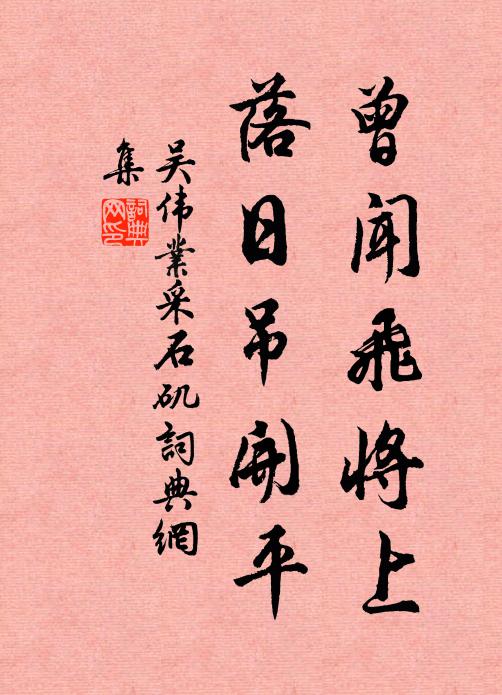 曾闻飛将上
落日吊開平
吴伟業采石矶詞典網
集
詞典
网印